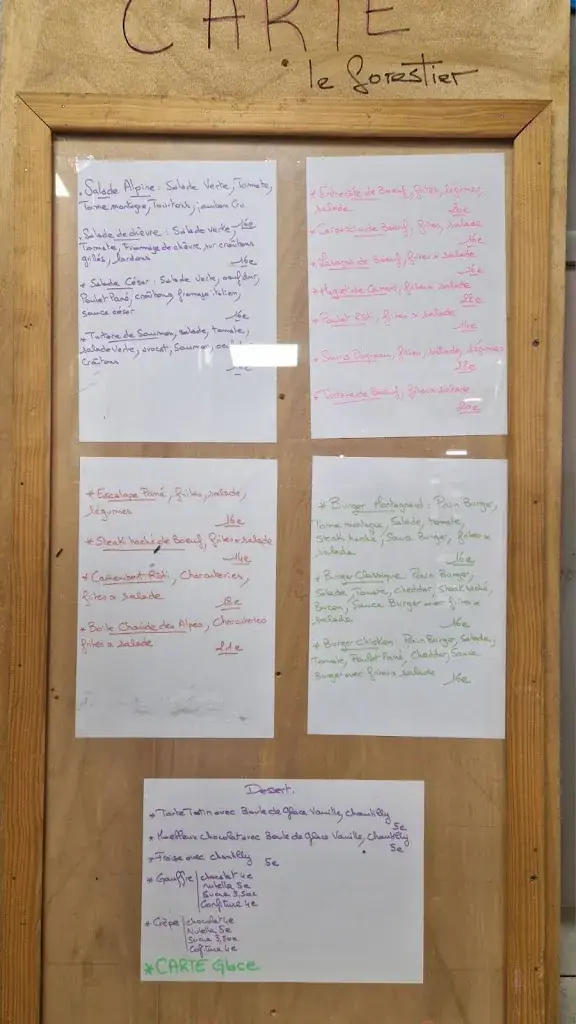 CARTE
le forestier
• Salade Alpine : Salade Verte, Tomate,
Tome montagne, Tourtons, jambon Cru
16e
• Salade de chèvre : Salade verte,
Tomate, Fromage de chèvre, sur croûtons
grillés, lardons
16e
* Salade César : Salade Verte, oeuf dur,
Poulet Pané, croûtons, fromage italien,
sauce césar
16e
* Tartare de Saumon, salade, tomate,
salade Verte, avocat, Saumon,
Croûtons
* Entrecôte de Boeuf, frites, légumes,
salade
* Carpaccio de Boeuf, frites, salade
16e
* de Boeuf, frites x salade
16e
* Magret de Canard, frites x salade
22e
* Poulet Rôti, frites x salade
* frites, salade, légumes
* Tartare de Boeuf, frites x salade
20e
* Escalope Pané, frites, salade,
légumes
16e
* Steak haché de Boeuf, frites x salade
14e
* Camembert Rôti, Charcuteries,
frites x salade
18e
* Boite Chaude des Alpes, Charcuteries
frites x salade
21e
* Burger Montagnard : Pain Burger,
Tome montagne, Salade, tomate,
Steak haché, Sauce Burger, frites x
salade
16e
* Burger Classique : Pain Burger,
Salade, Tomate, cheddar, Steak haché,
Bacon, Sauce Burger avec frites x
salade
16e
* Burger Chicken : Pain Burger, Salade,
Tomate, Poulet Pané, Cheddar, Sauce
Burger avec frites x salade
16e
Dessert.
* Tarte Tatin avec Boule de glace Vanille, chantilly
5e
* Moelleux chocolat avec Boule de glace Vanille, chantilly
5e
* Fraise avec chantilly
5e
* Gauffre chocolat 4e
Nutella 5e
Sucre 3,50e
Confiture 4e
* Crèpe chocolat 4e
Nutella 5e
Sucre 3,50e
Cofiture 4e
* CARTE Glace